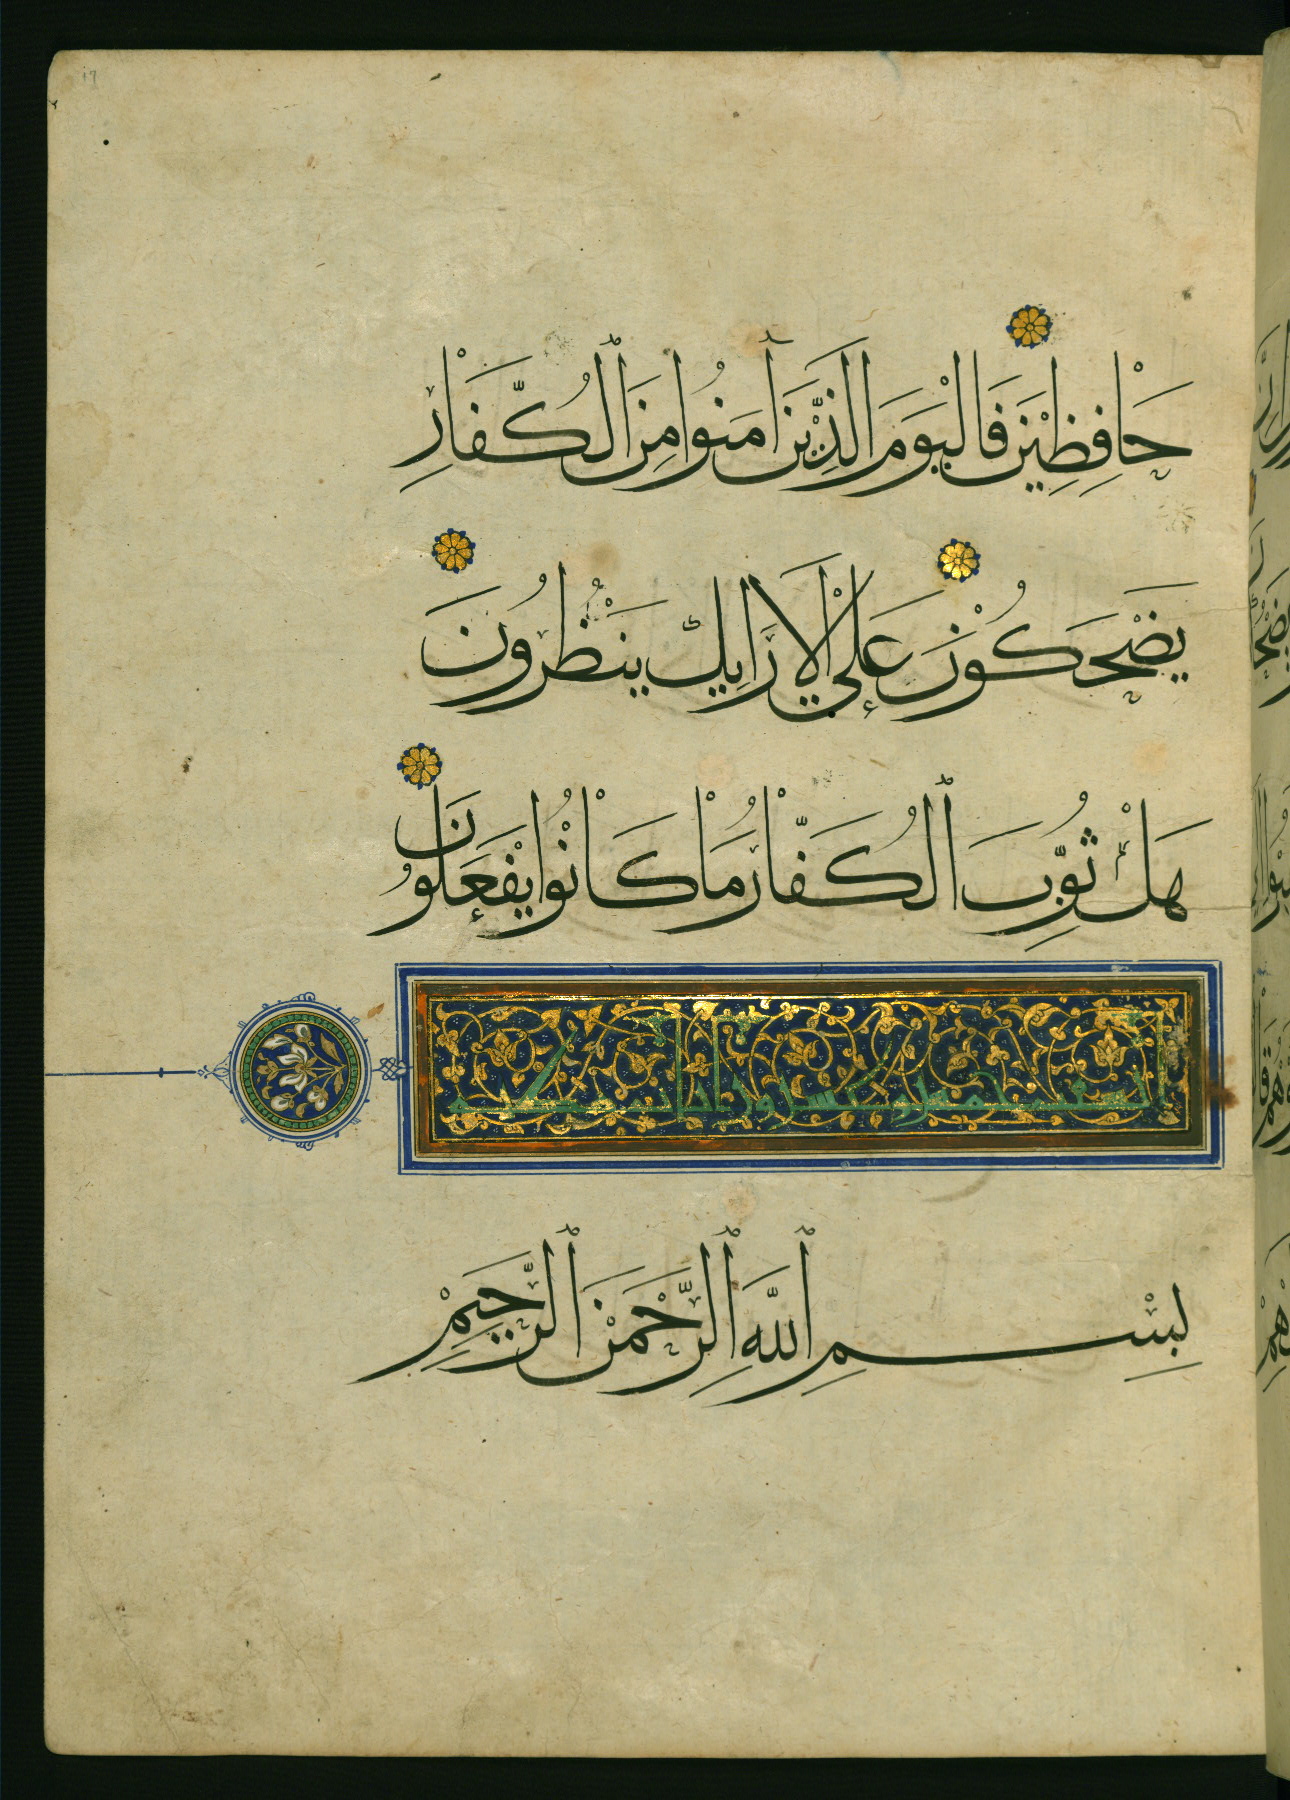 حَافِظِيْنَ فَالْيَوْمَ الَّذِيْنَ آمَنُوا مِنَ ٱلْكُفَّارِ
يَضْحَكُوْنَ عَلَى الْاَرَايِكِ يَنْظُرُونَ
هَلْ ثُوِّبَ ٱلْكُفَّارُ مَا كَانُوْا يَفْعَلُونَ
بِسْمِ ٱللَّهِ ٱلرَّحْمَنِ ٱلرَّحِيْمِ